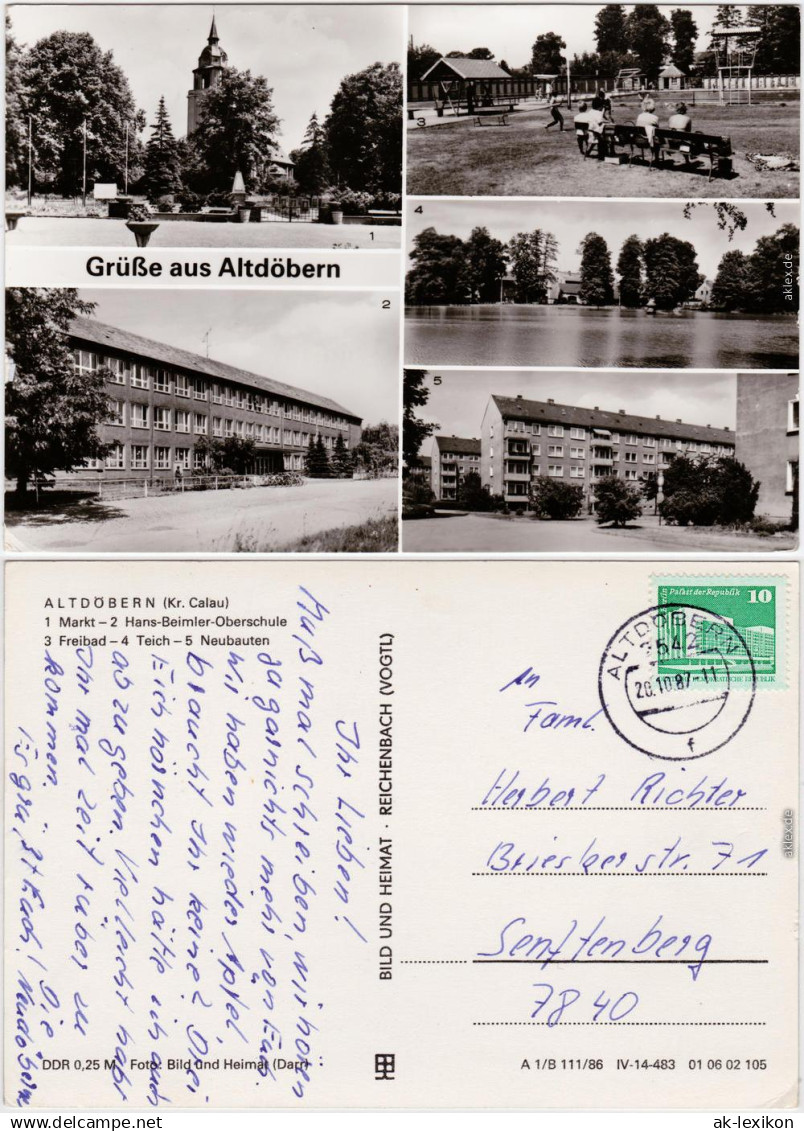 1
Grüße aus Altdöbern
2
3
4
5
aklex.de
ALTDÖBERN (Kr. Calau)
1 Markt – 2 Hans-Beimler-Oberschule
3 Freibad – 4 Teich – 5 Neubauten
Ihr Lieben!
Muß mal schreiben, wir hören
ja garnichts mehr von Euch
Wir haben wieder Äpfel,
braucht Ihr keine?
Eich hörnchen hätte ich auch
abzugeben. Vielleicht habt
Ihr mal Zeit rüber zu
kommen.
Es grüßt Euch! Die
BILD UND HEIMAT · REICHENBACH (VOGTL)
Berlin Palast der Republik 10
ALTDÖBERN
3542
20.10.87-11
f
An
Faml.
Herbert Richter
Briesker str. 71
Senftenberg
7840
aklex.de
DDR 0,25 M Foto: Bild und Heimat (Darr)
A 1/B 111/86 IV-14-483 01 06 02 105
www.ak-ansichtskarten.de
ak-lexikon